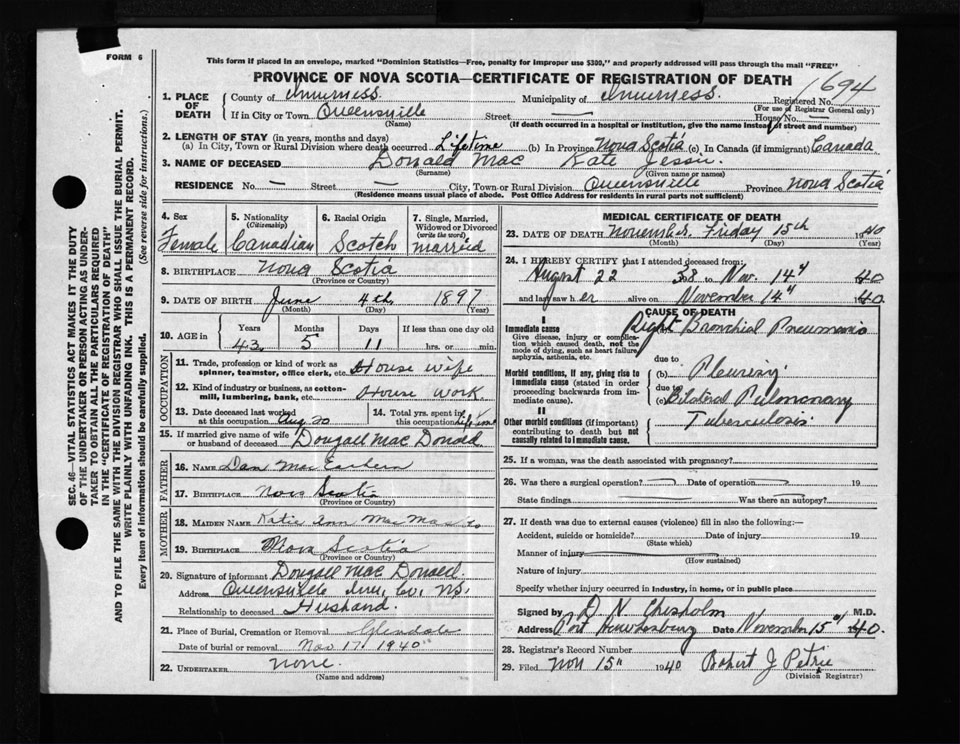 FORM 6
This form if placed in an envelope, marked "Dominion Statistics—Free, penalty for improper use $300," and properly addressed will pass through the mail "FREE"
PROVINCE OF NOVA SCOTIA—CERTIFICATE OF REGISTRATION OF DEATH
1. PLACE OF DEATH County of Inverness. Municipality of Inverness. Registered No. 1694
(For use of Registrar General only)
If in City or Town Queensville Street — House No. —
(Name) (If death occurred in a hospital or institution, give the name instead of street and number)
2. LENGTH OF STAY (in years, months and days)
(a) In City, Town or Rural Division where death occurred Lifetime (b) In Province Nova Scotia (c) In Canada (if immigrant) Canada
3. NAME OF DECEASED Donald Mac Kate Jessie.
(Surname) (Given name or names)
RESIDENCE No. — Street — City, Town or Rural Division Queensville Province Nova Scotia
(Residence means usual place of abode. Post Office Address for residents in rural parts not sufficient)
4. Sex Female
5. Nationality (Citizenship) Canadian
6. Racial Origin Scotch
7. Single, Married, Widowed or Divorced (write the word) married
8. BIRTHPLACE Nova Scotia
(Province or Country)
9. DATE OF BIRTH June 4th 1897
(Month) (Day) (Year)
10. AGE in Years Months Days If less than one day old
43 5 11 hrs. or min.
OCCUPATION
11. Trade, profession or kind of work as spinner, teamster, office clerk, etc. House wife
12. Kind of industry or business, as cotton-mill, lumbering, bank, etc. House work
13. Date deceased last worked at this occupation Aug 20
14. Total yrs. spent in this occupation Life time
15. If married give name of wife or husband of deceased Dougall Mac Donald
FATHER
16. NAME Dan Mac Eachern
17. BIRTHPLACE Nova Scotia
(Province or Country)
MOTHER
18. MAIDEN NAME Katie Ann Mac
19. BIRTHPLACE Nova Scotia
(Province or Country)
20. Signature of informant Dougall Mac Donald.
Address Queensville Inv. Co. N.S.
Relationship to deceased Husband.
21. Place of Burial, Cremation or Removal Glendale
Date of burial or removal Nov 17 1940
22. UNDERTAKER none.
(Name and address)
MEDICAL CERTIFICATE OF DEATH
23. DATE OF DEATH November. Friday 15th 1940
(Month) (Day) (Year)
24. I HEREBY CERTIFY that I attended deceased from:
August 22 38 to Nov. 14th 40
and last saw her alive on November 14th 40
CAUSE OF DEATH
I
Immediate cause
Give disease, injury or complication which caused death, not the mode of dying, such as heart failure, asphyxia, asthenia, etc.
(a) Right Bronchial Pneumonia
due to
Morbid conditions, if any, giving rise to immediate cause (stated in order proceeding backwards from immediate cause).
(b) Pleurisy.
due to
(c) Bilateral Pulmonary
Tuberculosis
II
Other morbid conditions (if important) contributing to death but not causally related to immediate cause.
25. If a woman, was the death associated with pregnancy?
26. Was there a surgical operation? Date of operation 19
State findings Was there an autopsy?
27. If death was due to external causes (violence) fill in also the following:—
Accident, suicide or homicide? Date of injury 19
(State which)
Manner of injury
(How sustained)
Nature of injury
Specify whether injury occurred in Industry, in home, or in public place
Signed by D N Chisholm M.D.
Address Port Hawkesbury Date November 15th 40.
28. Registrar's Record Number
29. Filed Nov 15th 1940 Robert J Petrie
(Division Registrar)
SEC. 46—VITAL STATISTICS ACT MAKES IT THE DUTY
OF THE UNDERTAKER OR PERSON ACTING AS UNDER-
TAKER TO OBTAIN ALL THE PARTICULARS REQUIRED
IN THE "CERTIFICATE OF REGISTRATION OF DEATH"
AND TO FILE THE SAME WITH THE DIVISION REGISTRAR WHO SHALL ISSUE THE BURIAL PERMIT.
WRITE PLAINLY WITH UNFADING INK. THIS IS A PERMANENT RECORD.
Every item of information should be carefully supplied. (See reverse side for instructions.)